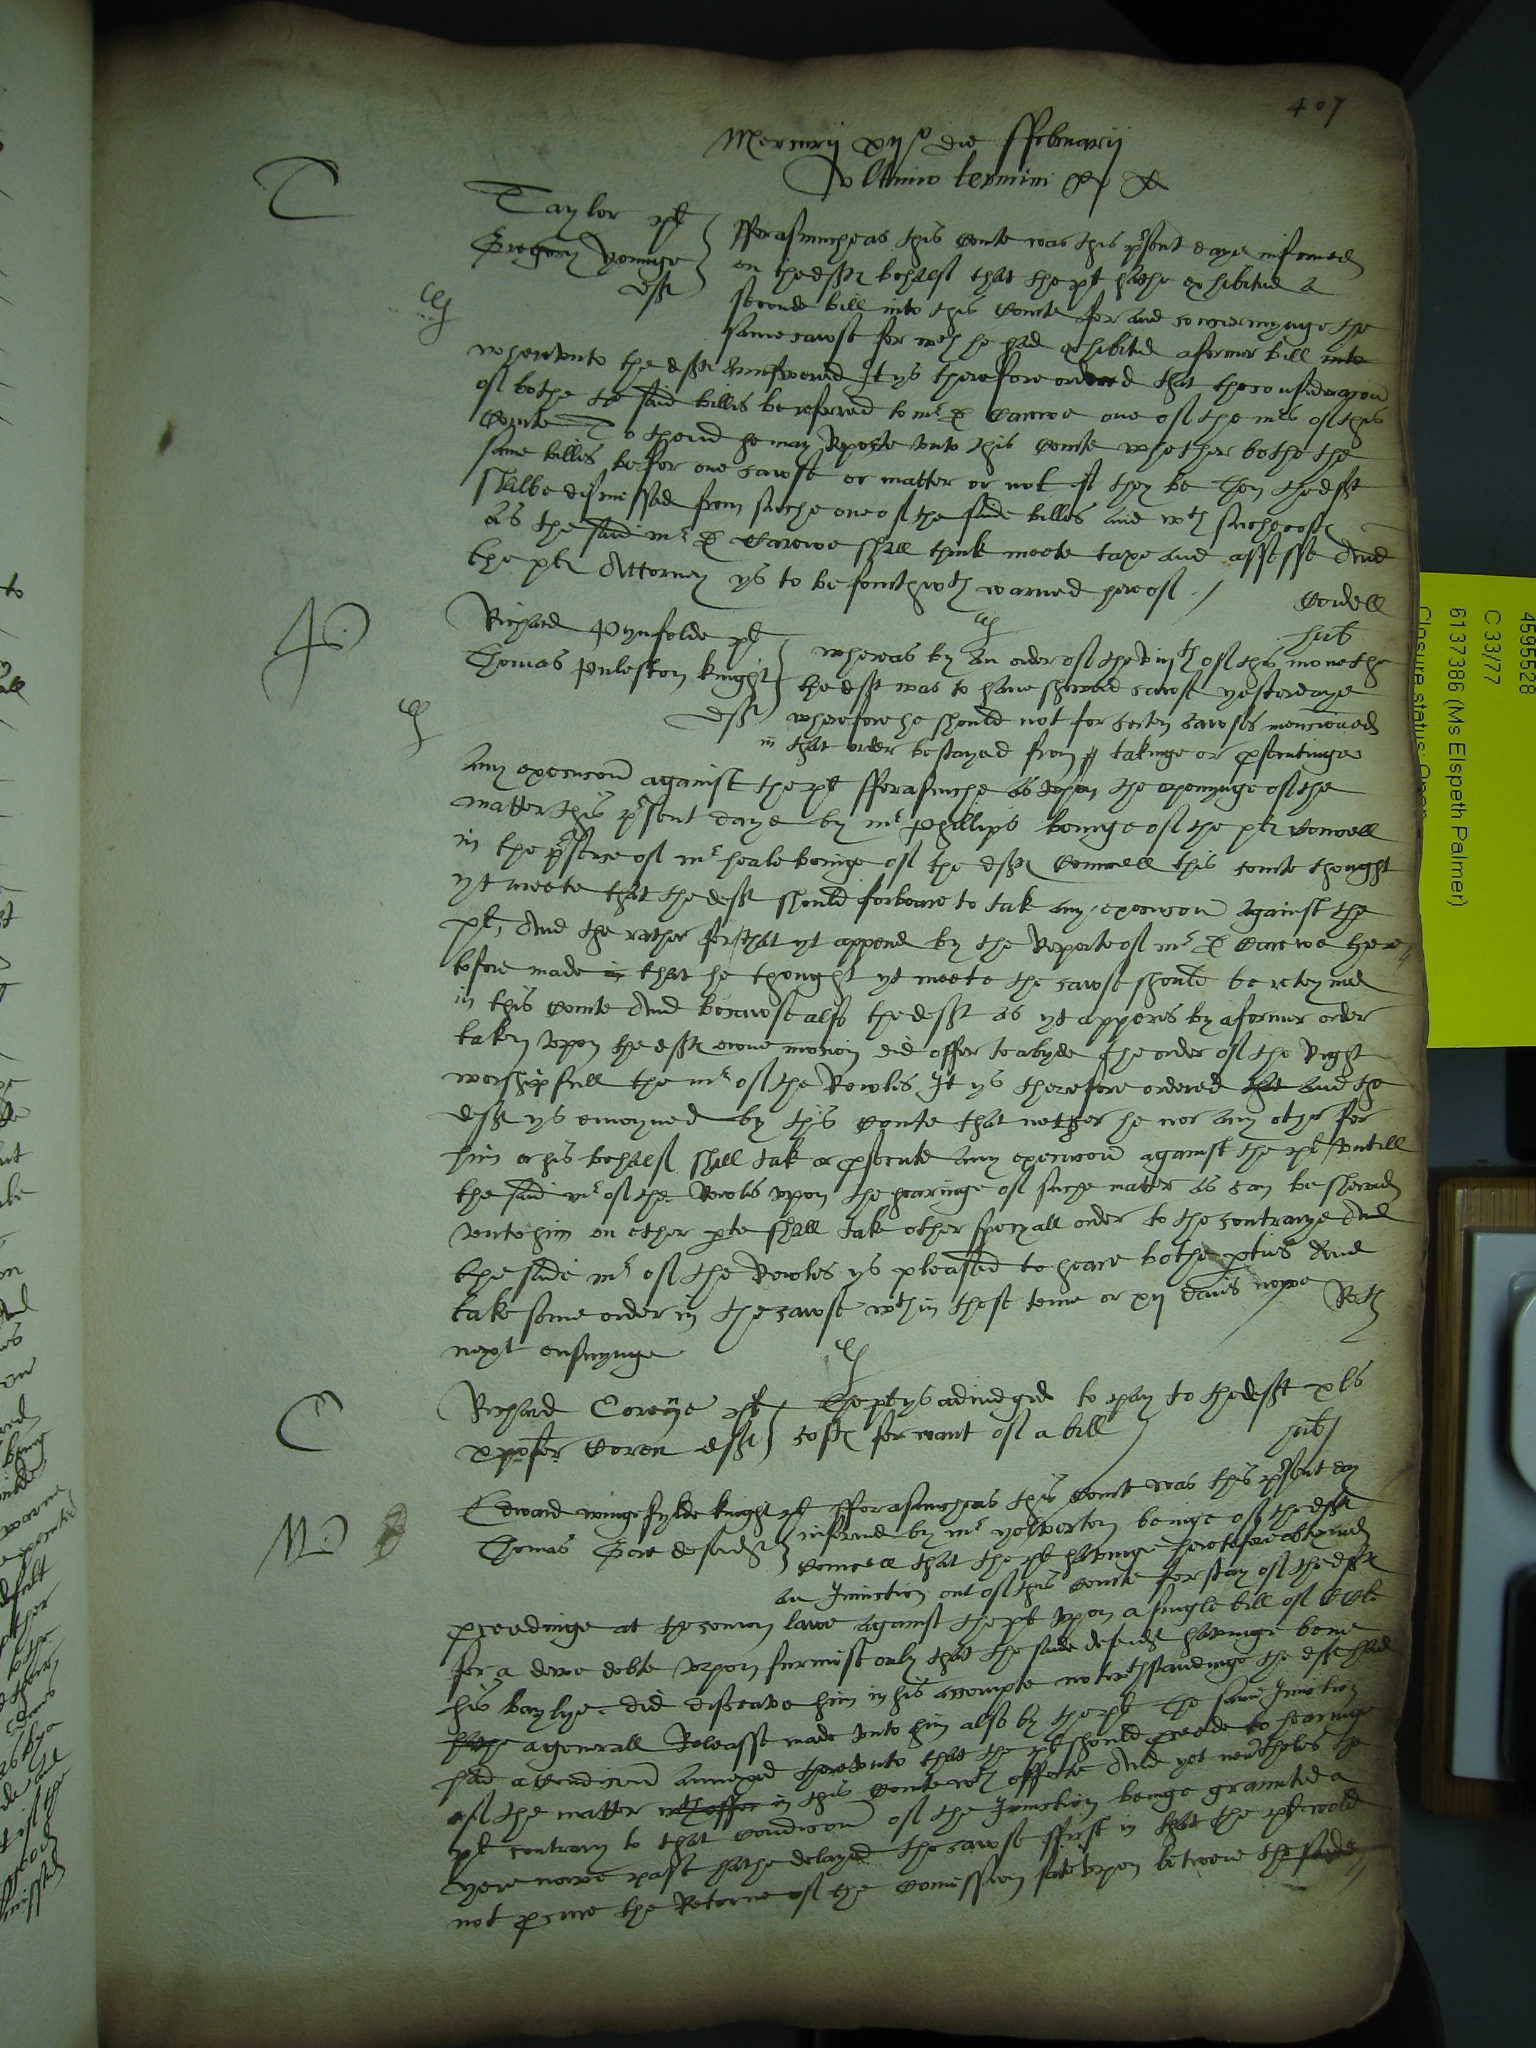 407
Mercurij xijo die ffebruarij
Ultimo termini
T
Taylor plt
Gregory Younge
deft
fforasmucheas this Courte was this pñt daye informed
on the deftes behalf that the plt hathe exhibited a
seconde bill into this Courte for and concernynge the
same cawse for wch he had exhibited a former bill into
whereunto the deft aunswered It ys therefore ordered that the consideracon
of bothe the said billes be referred to mr D Carewe one of the mrs of this
Courte To thend he may Reporte unto this Courte whether bothe the
same billes be for one cawse or matter or not if they be then the deft
shalbe dismissed from suche one of the saide billes and wth suche costes
as the said mr D Carewe shall think meete taxe and assesse And
the pltes Attorney ys to be fourthwth warned hereof /
Cordell
P
Richard Pynfolde plt
Thomas Puleston knight
deft
hub
whereas by an order of the viijth of this monethe
the deft was to have shewed cawse yesterdaye
wherefore he should not for certen cawses mencioned
in that order be stayed from takinge or psecutinge
any execucon against the plt fforasmuche as upon the openynge of the
matter this pñt daye by mr Phillips beinge of the pltes Councell
in the pñce of mr heale beinge of the deftes Councell this courte thought
yt meete that the deft should forbeare to tak any execucon against the
plt, And the rather for that yt appered by the Reporte of mr D Carewe here
tofore made in that he thought yt meete the cawse should be reteyned
in this Courte And becawse also the deft as yt apperes by a former order
taken upon the deftes owne mocion did offer to abyde the order of the Right
worshipfull the mr of the Rowles It ys therefore ordered that and the
deft ys enioyned by this Courte that nether he nor any other for
him or his behalf shall tak or psecute any execucon against the plt Untill
the said mr of the Rowles upon the hearinge of suche matter as can be shewed
unto him on ether pte shall take other specyall order to the contrarye And
the saide mr of the Rowles ys pleased to heare bothe pties And
take some order in the cawse wthin these tenne or xij daies nowe
next ensuynge
Rich
C
Richard plt
xpofer Coren deft
The plt ys adiudged to pay to the deft xls
costes for want of a bill
hub
M
Edward wingefylde knight plt
Thomas Gore defendt
fforasmucheas this Court was this pñt day
informed by mr yelverton beinge of the deftes
Councell that the plt havinge heretofore obteyned
an Iniunction out of this Courte for stay of the deftes
pceedinge at the comon lawe against the plt upon a single bill of
for a dewe debte upon surmise only that the saide defendt havinge bene
his baylye did disceave him in his accompte notwthstandinge the deft had
hathe a generall Releasse made unto him also by the plt The same Iniunction
had a Condicon annexed thereunto that the plt should pceede to hearinge
of the matter wth effer in this Courte wth effecte And yet nevertheles the
plt contrary to that Condicon of the Iniunction beinge graunted a
yere nowe past hathe delayed the cawse ffirst in that the plt wold
not pcure the Retorne of the Comission sate upon betwene the saide
4595528
C 33/77
6137386 (Ms Elspeth Palmer)
Closure status: Open